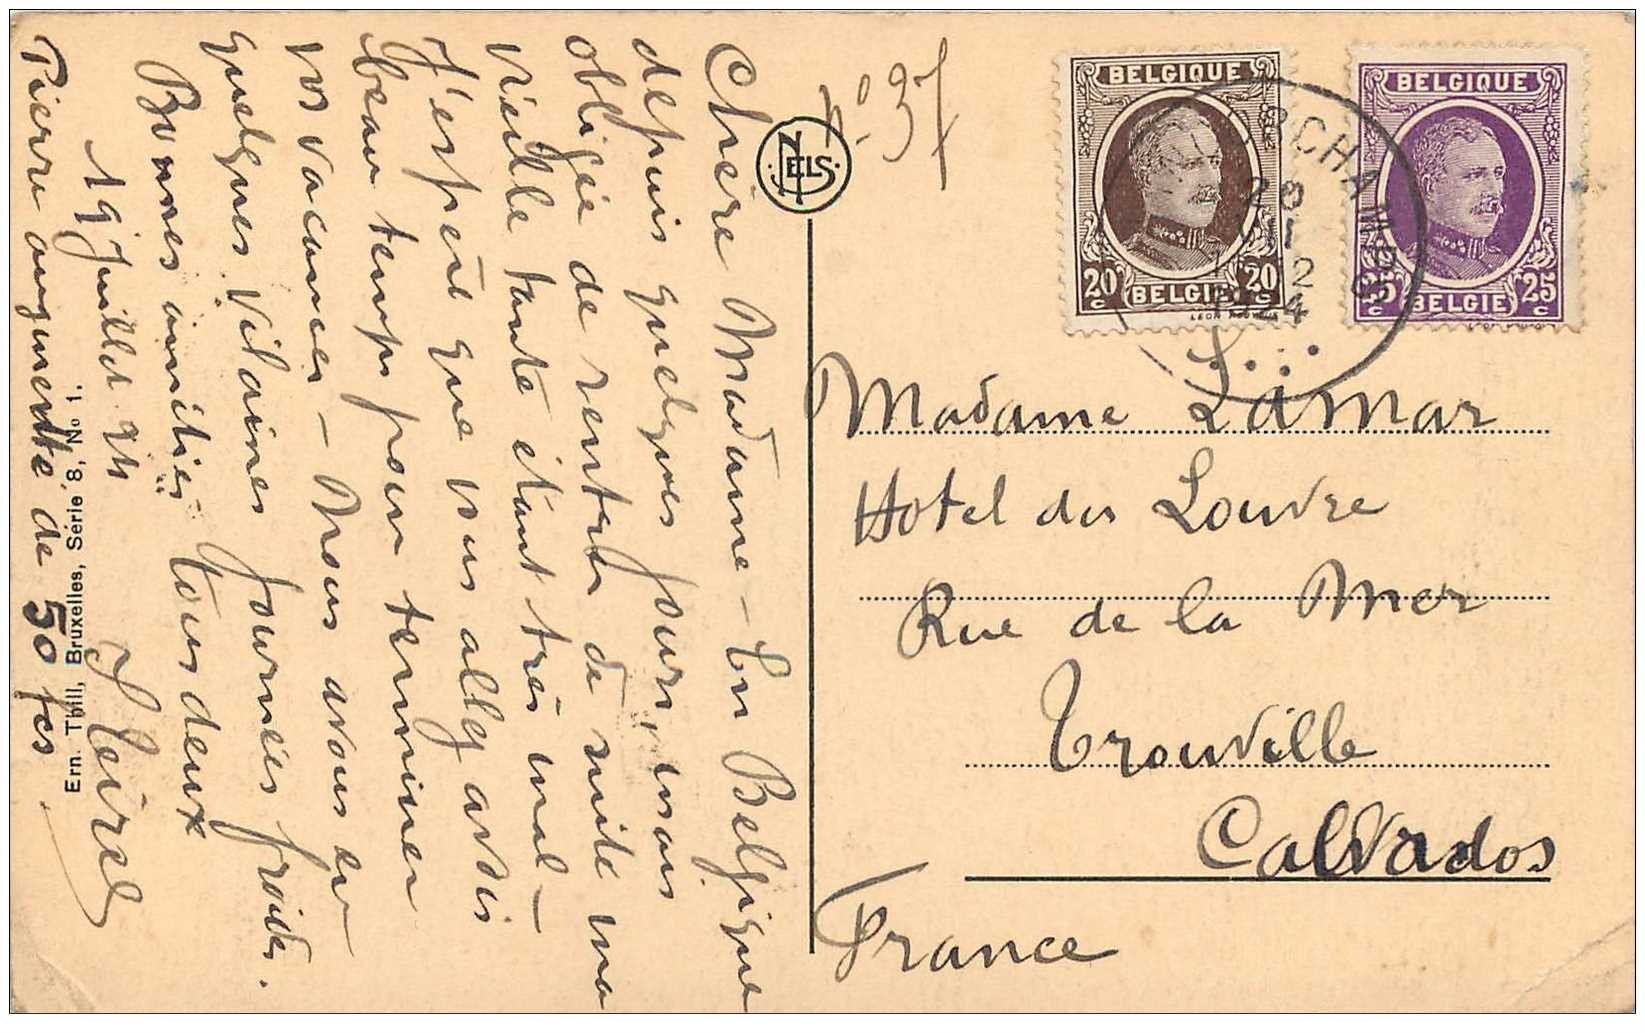 Chère Madame – En Belgique
depuis quelques jours, mais
obligée de rentrer de suite ma
vieille tante étant très mal –
J'espère que vous allez avoir
beau temps pour terminer
vos vacances – Nous avons eu
quelques vilaines journées froides.
Bonnes amitiés à tous deux
19 Juillet 24
Pierre augmenté de 50 fcs
Ern. Thill, Bruxelles, Série 8, No 1.
NELS
No 37
BELGIQUE
20 c 20 c
BELGIE
BELGIQUE
25 c 25 c
BELGIE
Madame Lamar
Hotel du Louvre
Rue de la Mer
Trouville
Calvados
France